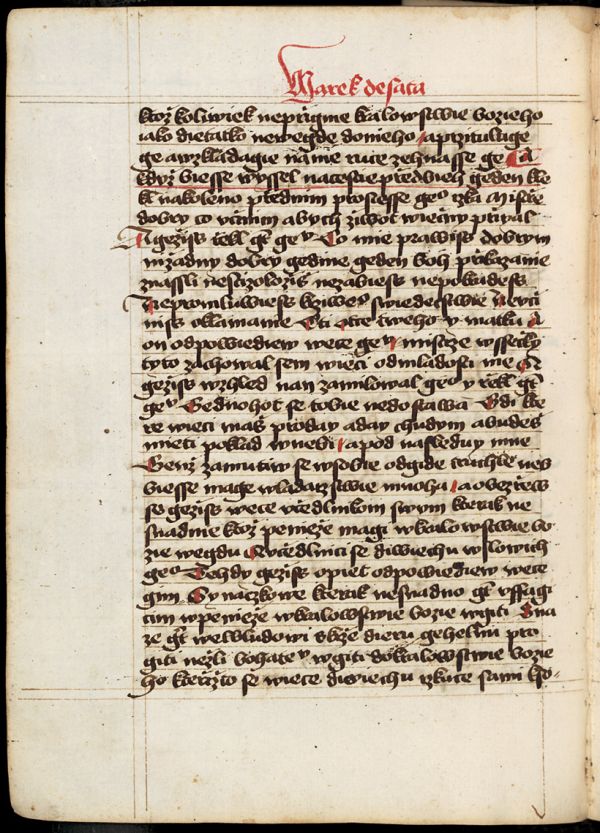 Marek desata
ktoż koliwiek neprigme kralowstwie bozieho
iako dietatko newegde donieho a przituluge
ge a wzkladagie na nie ruce zehnasse ge A
kdyż biesse wyssel na cestie predbieh geden kle
kl na koleno prednim prosiesse geº rzka Mistrze
dobry co vcinim abych żiwot wiecny prigal
A geziss rekl gt geᵘ Co mie prawiss dobrym
nizadny dobry gedine geden boh prikazanie
znassli nescizoloziss nezabiess nepokradess
Nepromluwiess krziweº swiedectwie Neyci
niss oklamanie Cti otce tweho y matku A
on odpowiediew wece geᵘ mistrze wssecky
tyto zachowal sem wieci od mladosti me A
geziss wzhled nan zamilowal geº y rekl gt
geᵘ Gednohot se tobie nedostawa Gdi kte
re wieci mass proday a day chudym a budess
mieti poklad w nebi a pod nasleduy mne
Genż zamutiw se w sobie odgide truchle neb
biesse mage wladarzstwie mnoha a obezrew
se geziss wece vcedlnikom swym kterak ne
snadnie ktoż penieze magi w kralowstwie bo
zie wegdu Vcedlnici se diwiechu w slowich
geº Tehdy geziss opiet odpowiediew wece
gim Synackowe kterak nesnadno gt vffagi
cim w penieze w kralowstwie bozie wgiti Sna
ze gt welbludowi skrże dieru gehelni pro
giti neżli bohateᵘ wgiti do kralowstwie bozie
ho kterzto se wiece diwiechu rzkuce sami k so-